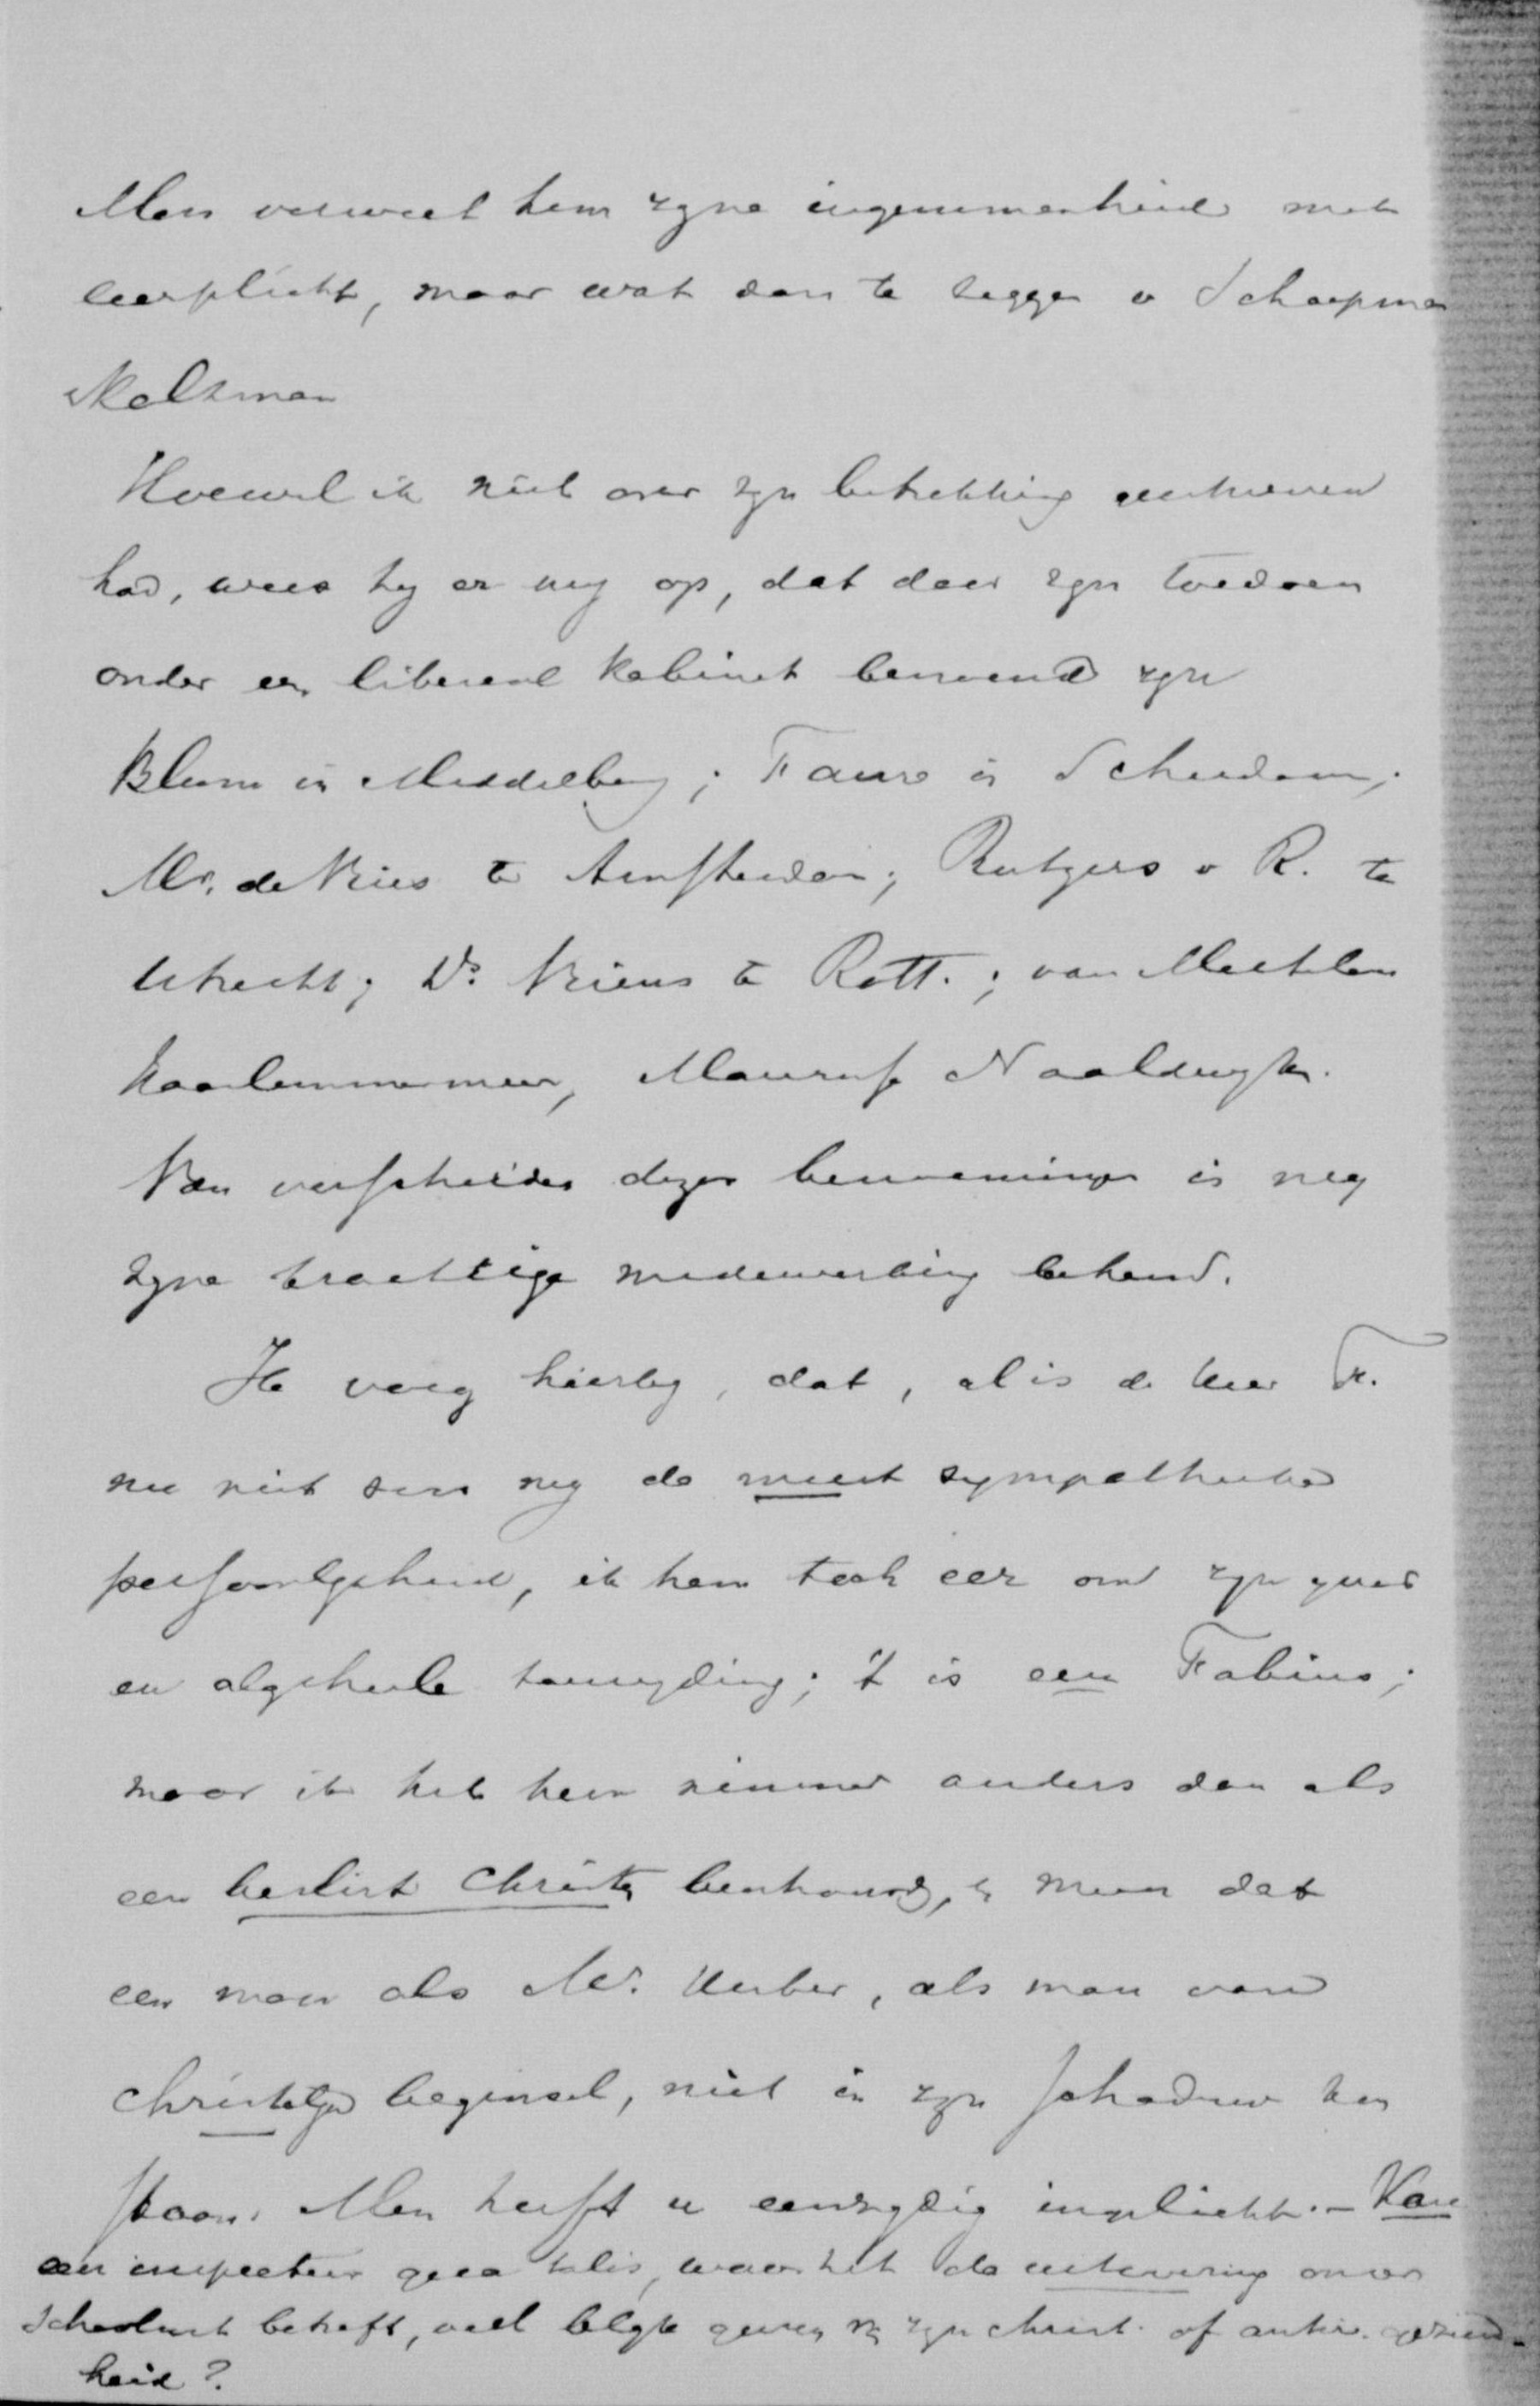 Men verweet hem zijne ingenomenheid met
leerplicht, maar wat dan te zeggen v Schaepman
Kolkman
Hoewel ik niet over zijn betrekking geschreven
had, wees hij er mij op, dat door zijn toedoen
onder een liberaal kabinet benoemd zijn
Blum in Middelburg; Faure in Schiedam;
Mr. de Vries te Amsterdam; Rutgers v R. te
Utrecht; Ds. Vriens te Rott.; van Mechelen
Haarlemmermeer, Naaldwijk.
Van verscheiden dezer benoemingen is mij
zijne krachtige medewerking bekend.
Ik voeg hierbij, dat, al is de heer F.
nu niet voor mij de meest sympathieke
persoonlijkheid, ik hem toch eer om zijn ijver
en algeheele toewijding; 't is een Fabius;
maar ik heb hem nimmer anders dan als
een beslist Christen beschouwd, en meen dat
een man als Mr. Kerber, als man van
christelijk beginsel, niet in zijn schaduw kan
staan. Men heeft u eenzijdig ingelicht. – Kan
een inspecteur qua talis, waar het de uitvoering onzer
Schoolwet betreft, veel blijk geven v zijn christ. of antir. gezind-
heid?